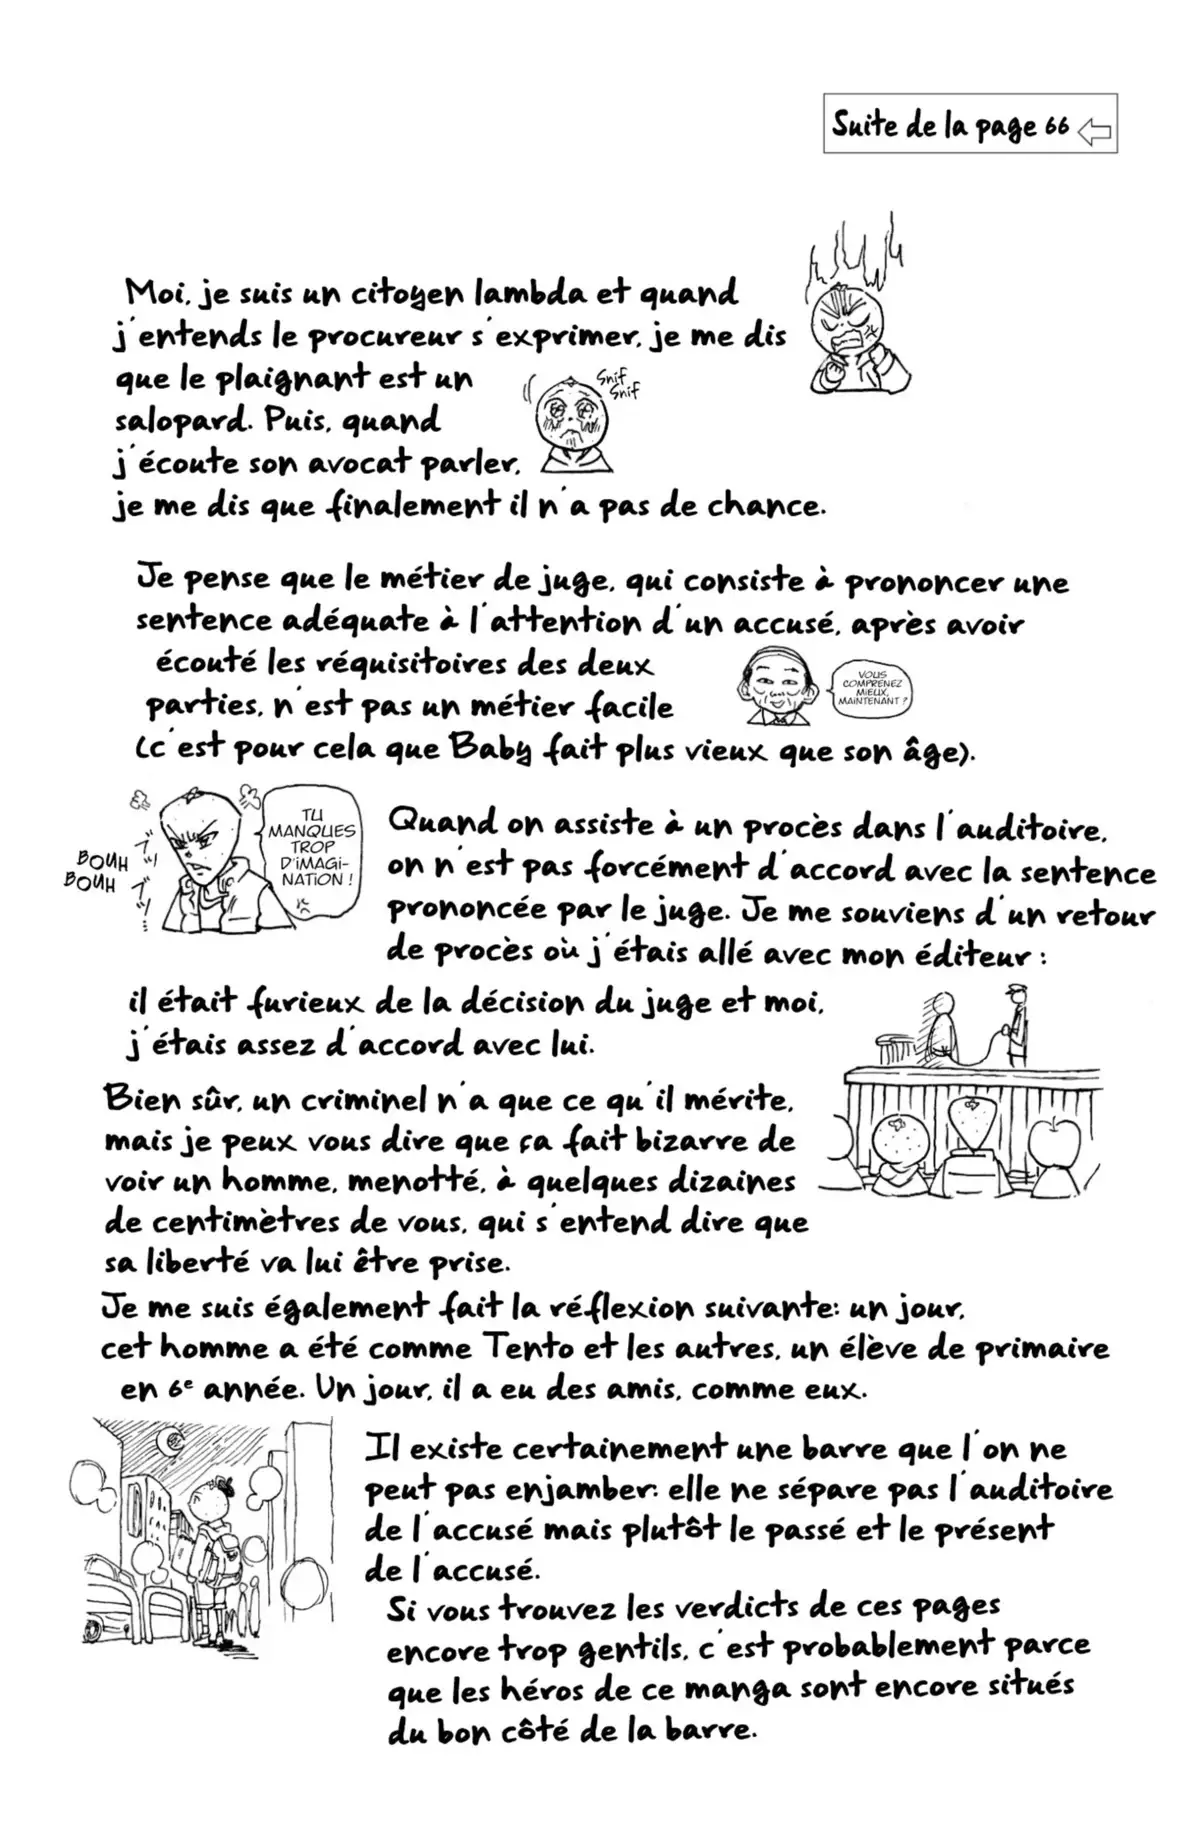 Suite de la page 66
Moi, je suis un citoyen lambda et quand
j'entends le procureur s'exprimer, je me dis
que le plaignant est un
salopard. Puis, quand
j'écoute son avocat parler,
je me dis que finalement il n'a pas de chance.
Snif
Snif
Je pense que le métier de juge, qui consiste à prononcer une
sentence adéquate à l'attention d'un accusé, après avoir
écouté les réquisitoires des deux
parties, n'est pas un métier facile
(c'est pour cela que Baby fait plus vieux que son âge).
VOUS
COMPRENEZ
MIEUX,
MAINTENANT ?
TU
MANQUES
TROP
D'IMAGI-
NATION !
BOUH
BOUH
Quand on assiste à un procès dans l'auditoire,
on n'est pas forcément d'accord avec la sentence
prononcée par le juge. Je me souviens d'un retour
de procès où j'étais allé avec mon éditeur :
il était furieux de la décision du juge et moi,
j'étais assez d'accord avec lui.
Bien sûr, un criminel n'a que ce qu'il mérite,
mais je peux vous dire que ça fait bizarre de
voir un homme, menotté, à quelques dizaines
de centimètres de vous, qui s'entend dire que
sa liberté va lui être prise.
Je me suis également fait la réflexion suivante: un jour,
cet homme a été comme Tento et les autres, un élève de primaire
en 6e année. Un jour, il a eu des amis, comme eux.
Il existe certainement une barre que l'on ne
peut pas enjamber: elle ne sépare pas l'auditoire
de l'accusé mais plutôt le passé et le présent
de l'accusé.
Si vous trouvez les verdicts de ces pages
encore trop gentils, c'est probablement parce
que les héros de ce manga sont encore situés
du bon côté de la barre.